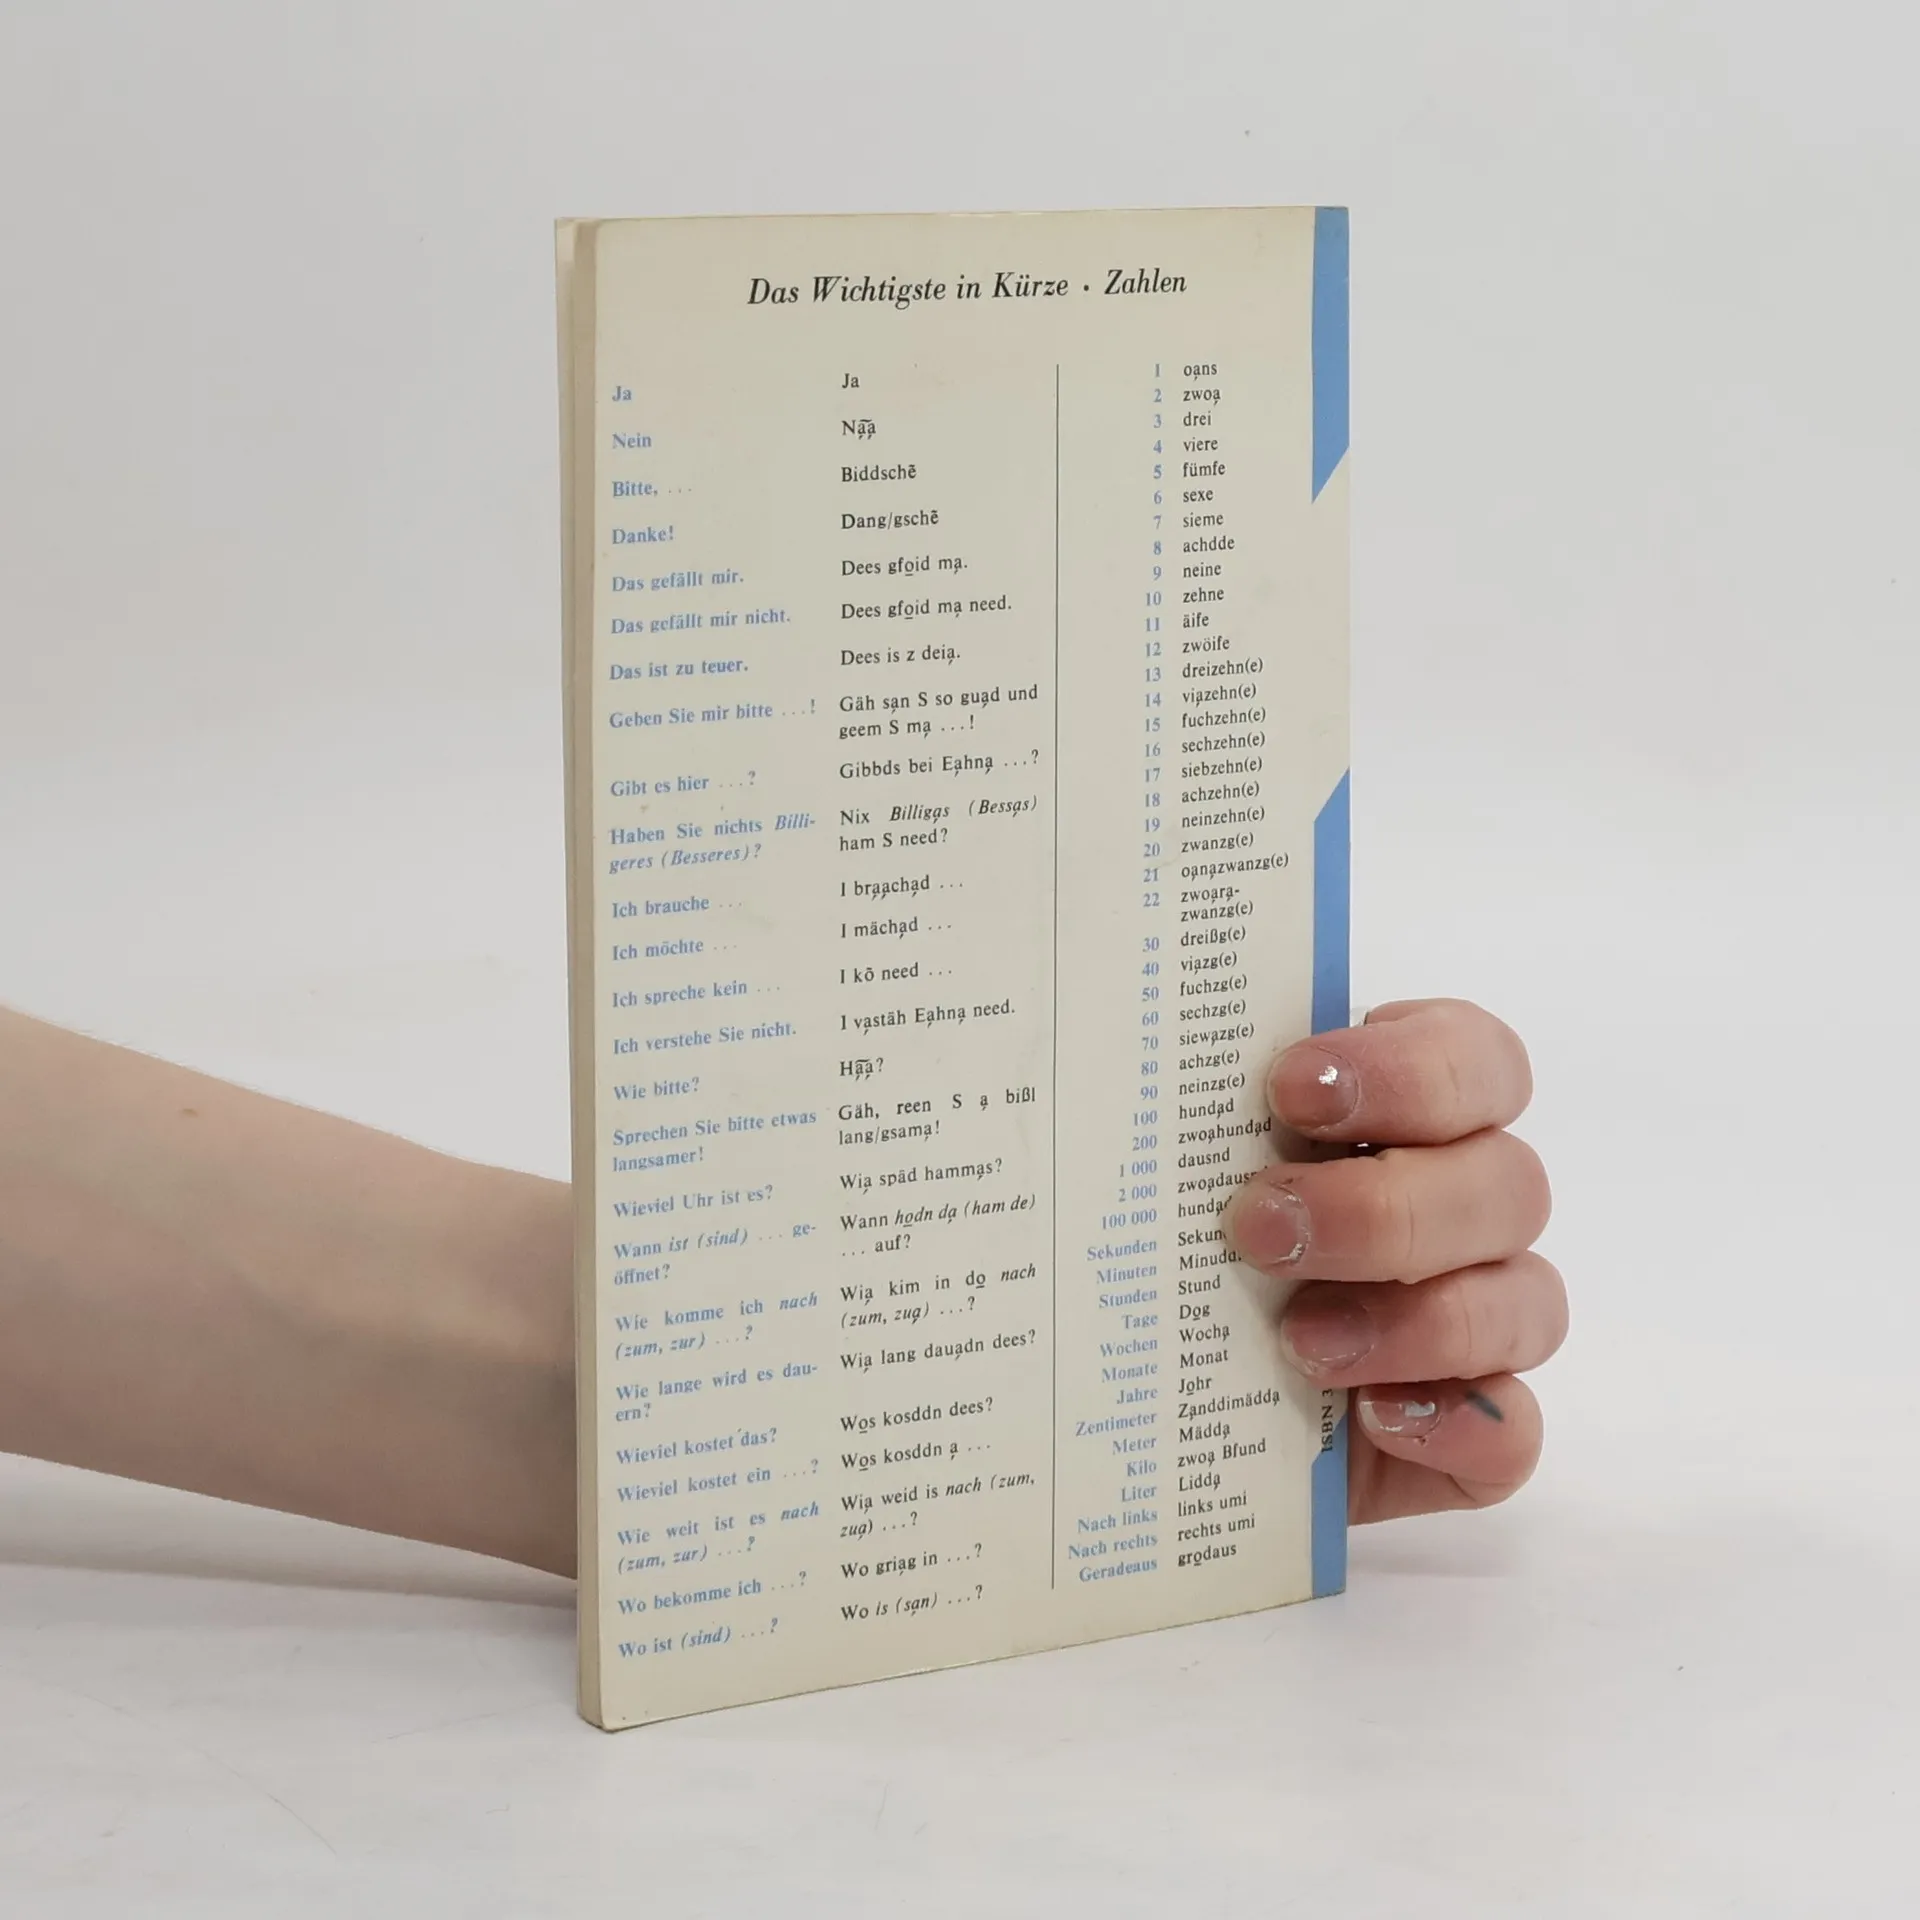 Das Wichtigste in Kürze · Zahlen
Ja Ja
Nein Nã̰ã̰
Bitte, ... Biddschẽ
Danke! Dang/gschẽ
Das gefällt mir. Dees gfo̲id mą.
Das gefällt mir nicht. Dees gfo̲id mą need.
Das ist zu teuer. Dees is z deią.
Geben Sie mir bitte ...! Gäh sąn S so guąd und
geem S mą ...!
Gibt es hier ...? Gibbds bei Eąhną ...?
Haben Sie nichts Billi- Nix Billigąs (Bessąs)
geres (Besseres)? ham S need?
Ich brauche ... I brąąchąd ...
Ich möchte ... I mächąd ...
Ich spreche kein ... I kõ need ...
Ich verstehe Sie nicht. I vąstäh Eąhną need.
Wie bitte? Hą̃ą̃?
Sprechen Sie bitte etwas Gäh, reen S ą bißl
langsamer! lang/gsamą!
Wieviel Uhr ist es? Wią späd hammąs?
Wann ist (sind) ... ge- Wann ho̲dn dą (ham de)
öffnet? ... auf?
Wie komme ich nach Wią kim in do̲ nach
(zum, zur) ...? (zum, zuą) ...?
Wie lange wird es dau- Wią lang dauądn dees?
ern?
Wieviel kostet das? Wo̲s kosddn dees?
Wieviel kostet ein ...? Wo̲s kosddn ą ...
Wie weit ist es nach Wią weid is nach (zum,
(zum, zur) ...? zuą) ...?
Wo bekomme ich ...? Wo grią̨g in ...?
Wo ist (sind) ...? Wo is (sąn) ...?
1 oąns
2 zwoą
3 drei
4 viere
5 fümfe
6 sexe
7 sieme
8 achdde
9 neine
10 zehne
11 äife
12 zwöife
13 dreizehn(e)
14 viązehn(e)
15 fuchzehn(e)
16 sechzehn(e)
17 siebzehn(e)
18 achzehn(e)
19 neinzehn(e)
20 zwanzg(e)
21 oąnązwanzg(e)
22 zwoąrą-
zwanzg(e)
30 dreißg(e)
40 viązg(e)
50 fuchzg(e)
60 sechzg(e)
70 siewązg(e)
80 achzg(e)
90 neinzg(e)
100 hundąd
200 zwoąhundąd
1 000 dausnd
2 000
100 000
Sekunden
Minuten
Stunden Stund
Tage Do̲g
Wochen Wochą
Monate Monat
Jahre Jo̲hr
Zentimeter Ząnddimäddą
Meter Mäddą
Kilo zwoą Bfund
Liter Liddą
Nach links links umi
Nach rechts rechts umi
Geradeaus gro̲daus
ISBN 3